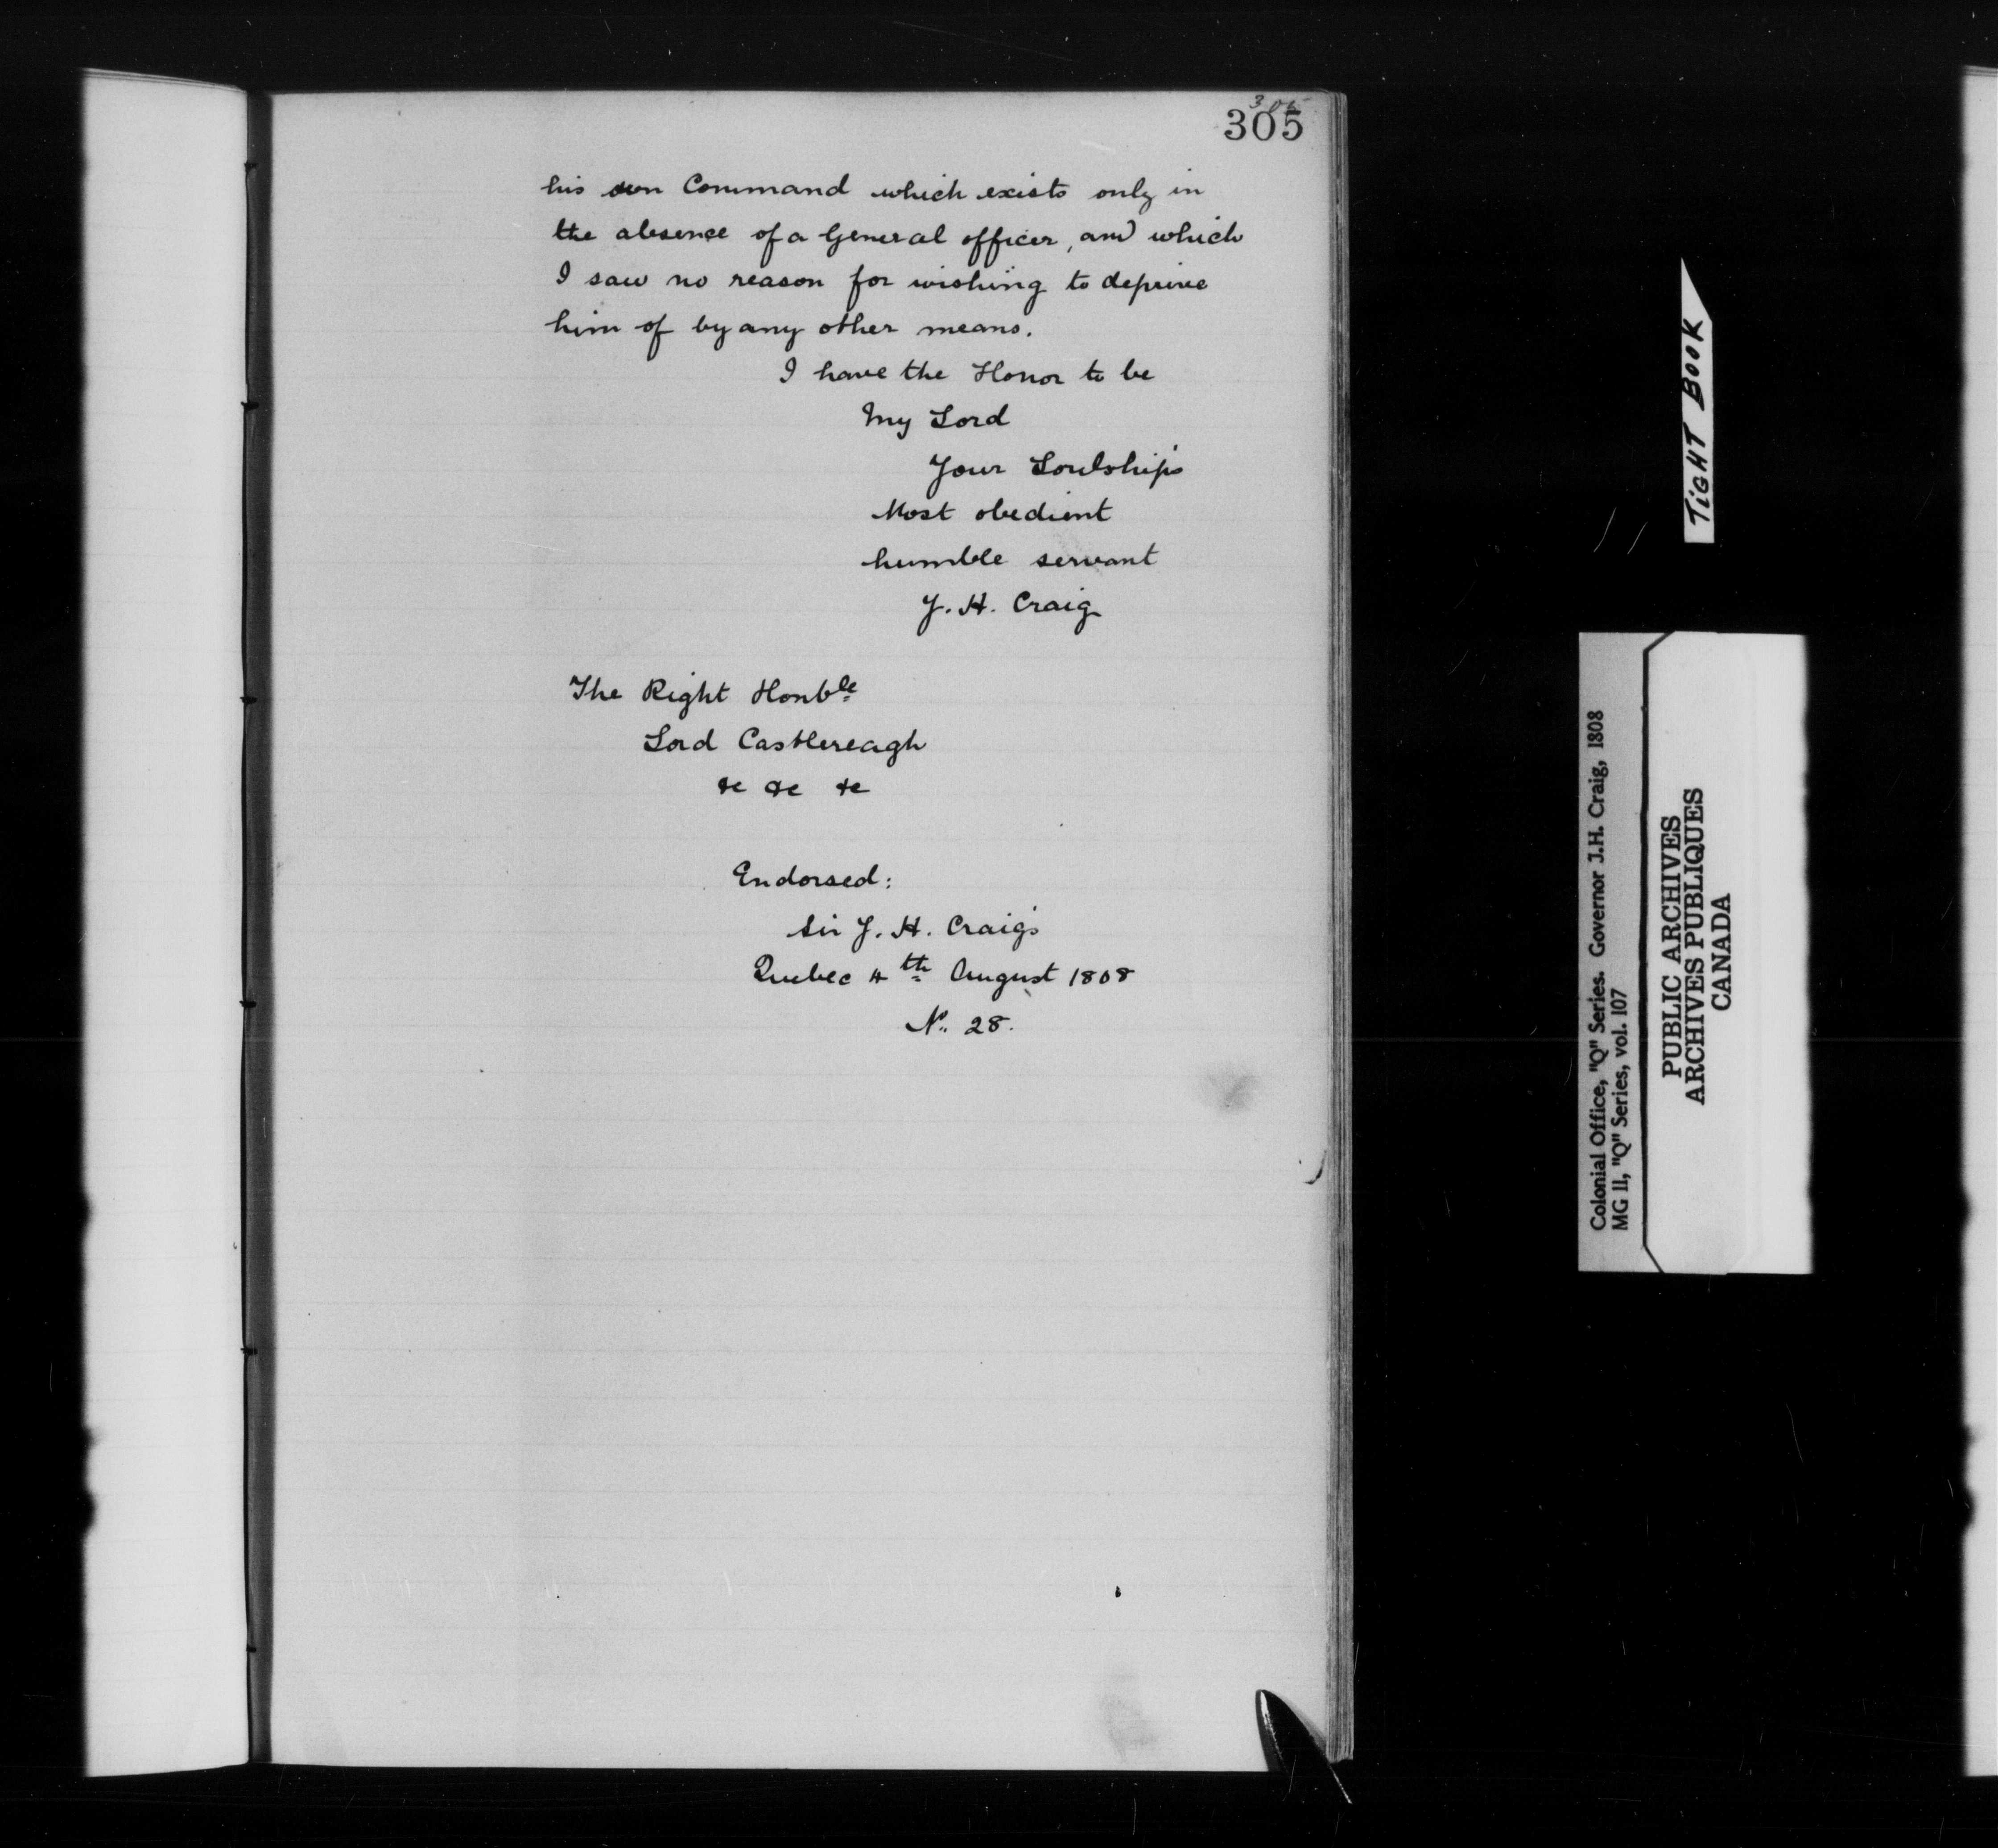 305
305
his own Command which exists only in
the absence of a General officer, and which
I saw no reason for wishing to deprive
him of by any other means.
I have the Honor to be
My Lord
Your Lordship's
Most obedient
humble servant
J. H. Craig
The Right Honble
Lord Castlereagh
&c &c &c
Endorsed:
Sir J. H. Craig's
Quebec 4th August 1808
No. 28.
TIGHT BOOK
Colonial Office, "Q" Series. Governor J.H. Craig, 1808
MG 11, "Q" Series, vol. 107
PUBLIC ARCHIVES
ARCHIVES PUBLIQUES
CANADA